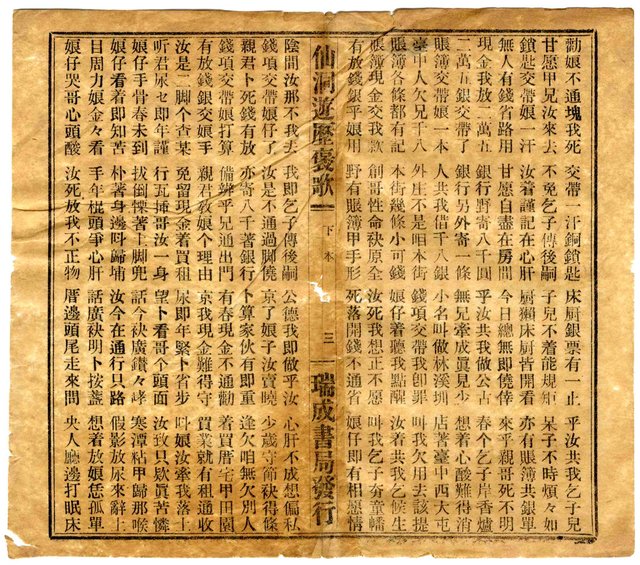 勸娘不通塊死 交帶一汗銅鎖匙 床厨銀票有一止 乎汝共我乞子兒
甘愿甲兄汝來去 不免乞子傳後嗣 子兒不着能規矩 呆子不時煩々如
鎖匙交帶娘一汗 汝着謹記在心肝 厨頼床厨皆開看 亦有賬簿共銀單
無人有錢省路用 甘愿自盡在房間 今日總無即僥倖 來乎親哥死不明
現金我放一萬五 銀行野寄八千圓 乎汝共我做公古 春个乞子岸香爐
二萬五銀交帶了 銀行另外寄一條 無兄牽成眞見少 想着心酸難得消
賬項交帶娘一本 人共我借千八銀 小名叫做林溪圳 店著臺中西大屯
臺中人欠兄千八 外庄不是咱本街 錢項交帶我卽罪 叫我欠用去該提
賬簿各條都有記 本街幾條小可錢 娘仔着聽我點醒 汝着共我乞候生
賬簿現金交我款 創哥性命袂原全 汝死我想正不愿 叫我乞子夯童幡
有放錢銀乎娘用 野有賬簿甲手形 死落開錢不通省 娘仔即有相愿情
仙洞遊歷褒歌 下本 三 瑞成書局發行
陰間汝那不我去 我即乞子傳後嗣 公德我即做乎汝 心肝不成想偏私
錢項交帶娘仔了 汝是不通過脚僥 京了娘子汝賣曉 少歲守節袂得條
親君卜死錢有放 亦寄八千著銀行 卜算家伙有即重 逢欠咱無欠別人
錢項交帶娘打算 備辨乎兄通出門 有春現金不通勸 着買厝宅甲田園
有放錢銀交娘手 親君放娘个理由 京我現金難得守 買業就有租通收
汝是二脚个查某 免留現金着買租 尿即年緊卜省步 叫娘汝牽我落土
听君尿セ即年謹 行瓦捅哥汝一身 望卜看哥个頭面 汝致只欵眞苦憐
娘仔手骨春未到 拔倒慄著土脚兜 話今袂廣鑽々哮 寒潭粘甲歸那喉
娘仔看着即知苦 朴著身邊呌歸埔 汝今在通行只路 假影放尿來辭土
目周力娘金々看 手年棍頭爭心肝 話廣袂明卜按盞 想着放娘恁孤單
娘仔哭哥心頭酸 汝死放我不正物 厝邊頭尾走來問 央人廳邊打眠床